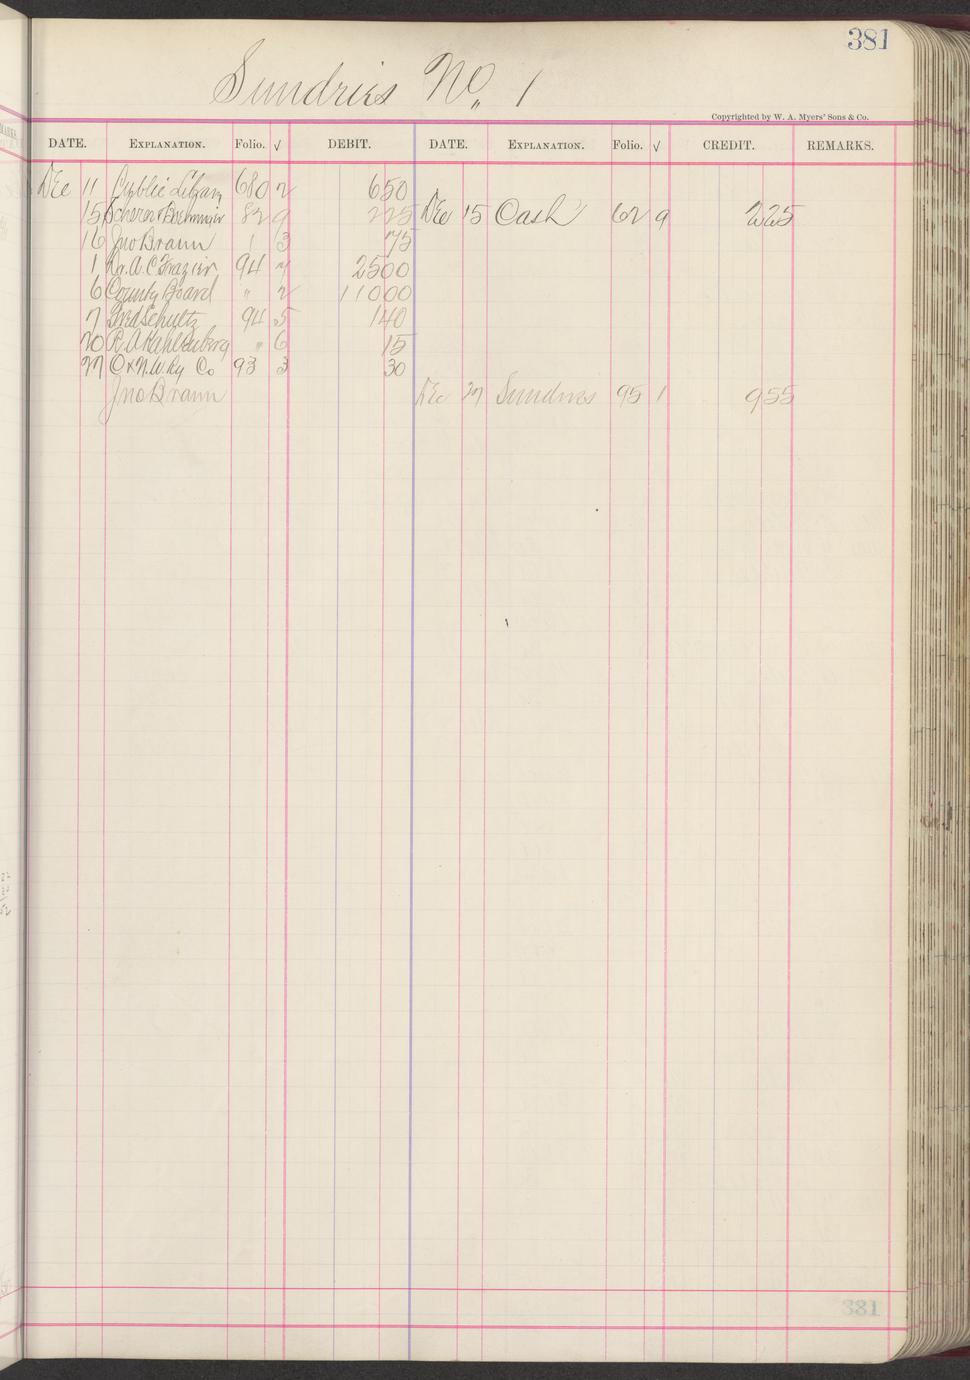 381
Sundries No. 1
Copyrighted by W. A. Myers' Sons & Co.
DATE. EXPLANATION. Folio. √ DEBIT. DATE. EXPLANATION. Folio. √ CREDIT. REMARKS.
Dec 11 Public Library 680 2 650
15 82 9 225 Dec 15 Cash 62 9 225
16 Jno Braun 1 3 75
1 Dr. A. C. Frazier 94 7 2500
6 County Board " 2 11000
7 Fred Schultz 94 5 140
20 R. A. Kahlenberg " 6 15
27 C & N. W. Ry Co 93 3 30
Jno Braun Dec 27 Sundries 95 1 955
381